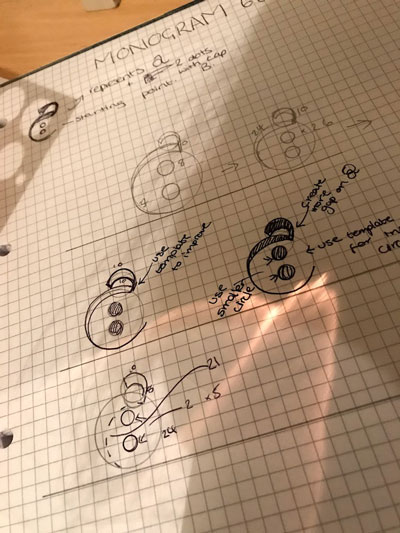 MONOGRAM
represents a
+ 2 dots
starting point with cap
B.
8
8
24
10
x 2.6
use
template
to improve
create
more
gap on a
use template
for this
circle
use
smaller
circle
21
2 x5
24